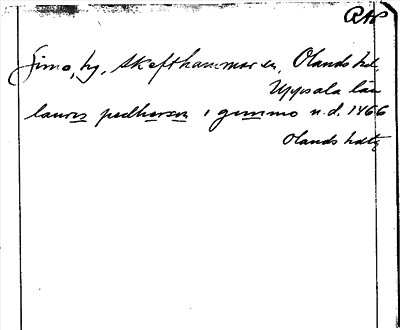 RAP
Simo, by, Skefthammar sn, Olands hd,
Uppsala län
laures pedhersson i gummo n.d. 1466
Olands hdtg